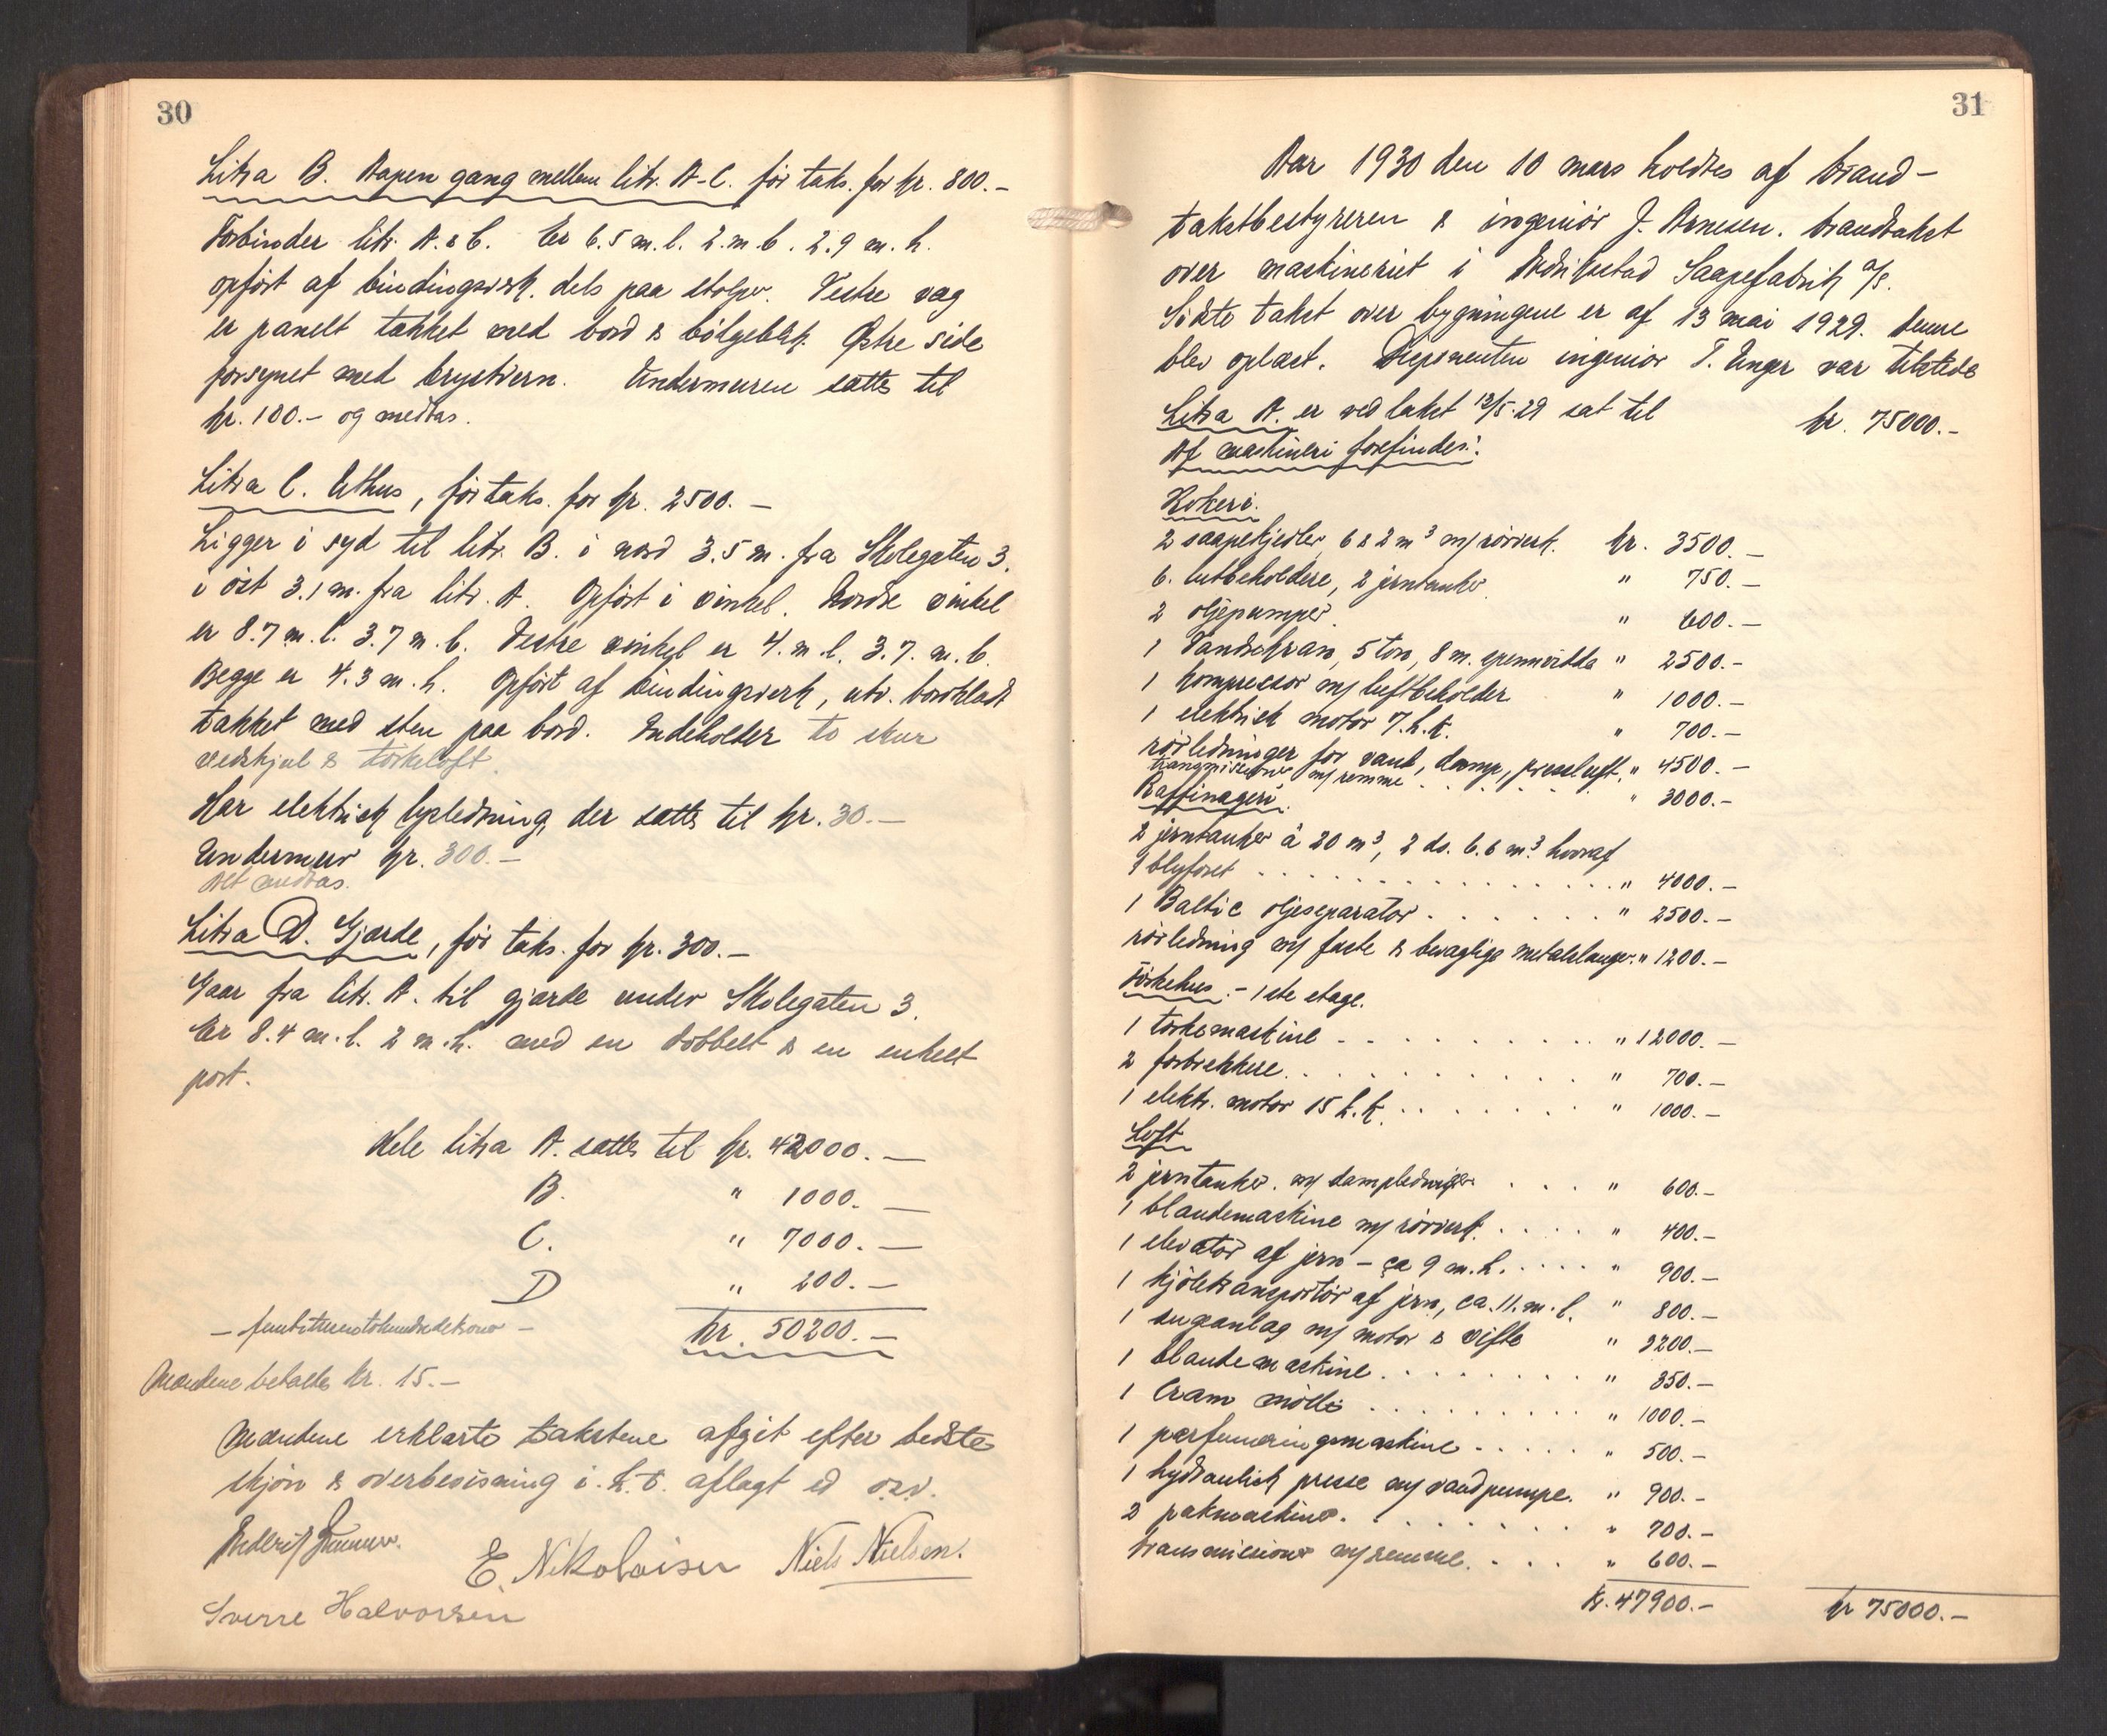 30
Litra B. Aapen gang mellem litr. A-C. før taks. for kr. 800.-
Forbinder litr. A. & C. Er 6.5 m. l. 2. m. b. 2.9 m. h.
opført af bindingsverk. dels paa stolper. Vestre væg
er panelt tækket med bord & bølgeblik. Østre side
forsynet med brystvern. Undermuren sættes til
kr. 100.- og medtas.
Litra C. Uthus, før taks. for kr. 2500.-
Ligger i syd til litr. B. i nord 3.5 m. fra Skolegaten 3.
i øst 3.1 m. fra litr. A. Opført i vinkel. Nordre vinkel
er 8.7 m. l. 3.7 m. b. Vestre vinkel er 4. m. l. 3.7. m. b.
Begge er 4.3 m. h. Opført af bindingsverk, utv. bordklædt
tækket med sten paa bord. Indeholder to skur
vedskjul & tørkeloft.
Har elektrisk lysledning, der sættes til kr. 30.-
Undermur kr. 300.-
Alt medtas.
Litra D. Gjærde, før taks. for kr. 300.-
Gaar fra litr. A. til gjærde under Skolegaten 3.
Er 8.4 m. l. 2 m. h. med en dobbelt & en enkelt
port.
Hele litra A. sættes til kr. 42000.-
B. " 1000.-
C. " 7000.-
D " 200.-
- femtitusentohundredekroner - kr. 50200.-
Mændene betaltes kr. 15.-
Mændene erklærte taksterne afgit efter bedste
skjøn & overbevisning i. h. t. aflagt ed osv.
E. Nikolaisen Niels Nielsen.
Sverre Halvorsen
31
Aar 1930 den 10 mars holdtes af brand-
takstbestyreren & ingeniør J. Arnesen. brandtakst
over maskineriet i Fredrikstad Saapefabrik a/s.
Sidste takst over bygningene er af 13 mai 1929. Denne
blev oplæst. Disponenten ingeniør T. Unger var tilstede
Litra A. er ved takst 13/5.29 sat til kr. 75000.-
Af maskineri forefindes:
Kokeri.
2 saapekjedler 6 & 2 m³ m/ rørverk. kr. 3500.-
6. lutbeholdere, 2 jerntanker. " 750.-
2 oljepumper. " 600.-
1 Vandkran, 5 ton, 8 m. spennvidde " 2500.-
1 kompressor m/ luftbeholder " 1000.-
1 elektrisk motor 7. h. k. " 700.-
rørledninger for vand, damp, pressluft. " 4500.-
transmissioner m/ remme . . . . " 3000.-
Raffinageri.
2 jerntanker à 20 m³, 2 do. 6.6 m³. hvoraf
1 blyforet . . . . . . . . . . " 4000.-
1 Baltic oljeseparator . . . . . . " 2500.-
rørledning m/ faste & bevæglige metalslanger. " 1200.-
Tørkehus. - 1ste etage.
1 tørkemaskine . . . . . . . . . . " 12000.-
2 forbrekkere . . . . . . . . . . " 700.-
1 elektr. motor 15 h. k. . . . . . . " 1000.-
Loft
2 jerntanker. m/ dampledninger . . . . " 600.-
1 blandemaskine m/ rørverk. . . . . " 400.-
1 elevator af jern - ca 9 m. h. . . . . " 900.-
1 kjøletransportør af jern, ca. 11. m. l. " 800.-
1 sugeanlæg m/ motor & vifte " 2200.-
1 blandemaskine . . . . . . . . " 350.-
1 Cram mølle . . . . . . . . . " 1000.-
1 parfumeringsmaskine . . . . . " 500.-
1 hydraulisk presse m/ vandpumpe. " 900.-
2 pakmaskiner. . . . . . . . " 700.-
transmissioner m/ remme. . . . . " 600.-
kr. 47900.- kr 75000.-